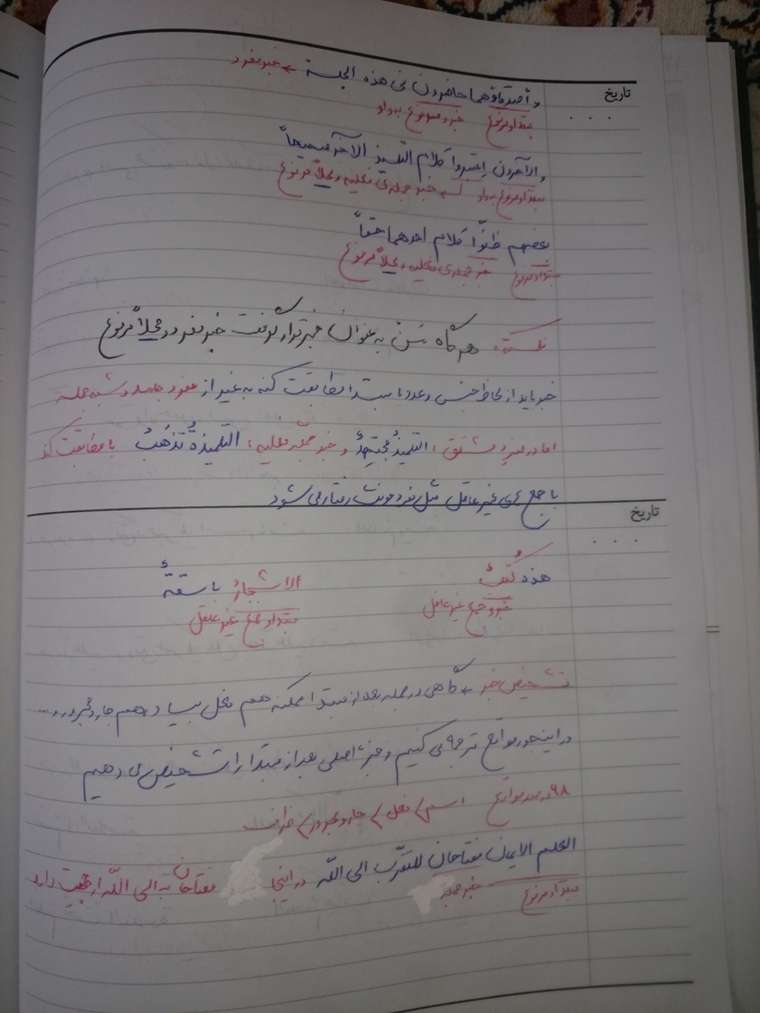 تاریخ
و أصدقاؤهما حاضرون في هذه الجلسة ← خبر مفرد
مبتدا و مرفوع خبر و مرفوع به واو
و الآخرون إعتبروا كلام التلميذ الآخر صحيحاً
مبتدا و مرفوع به واو خبر جمله ی فعلیه و محلاً مرفوع
بعضهم ظنّوا كلام احدهما حقاً
مبتدا و مرفوع خبر جمله ی فعلیه و محلاً مرفوع
نکته: هر گاه به عنوان خبر قرار گرفت خبر مفرد و محلاً مرفوع
خبر باید از لحاظ جنس و عدد با مبتدا مطابقت کنه به غیر از مفرد جامد و شبه جمله
اما در مفرد مشتق: التلميذُ مجتهدٌ و خبر جمله فعلیه: التلميذةُ تذهبُ باید مطابقت کند
با جمع های غیر عاقل مثل مفرد مونث رفتار می شود
تاریخ
هذه كُتُبٌ الاشجارُ باسقةٌ
خبر و جمع غیر عاقل مبتدا و جمع غیر عاقل
تشخیص خبر ← گاهی در جمله بعد از مبتدا ممکنه هم فعل بیاد، هم جار و مجرور و ....
در اینجور مواقع ترجمه می کنیم و جزء اصلی بعد از مبتدا را تشخیص می دهیم
۹۸ درصد مواقع اسم / فعل / جار و مجرور / ظرف
العلم الايمان مفتاحان للتقرّب الى الله در اینجا مفتاحان به الى الله ارجحیت دارد
مبتدا و مرفوع خبر